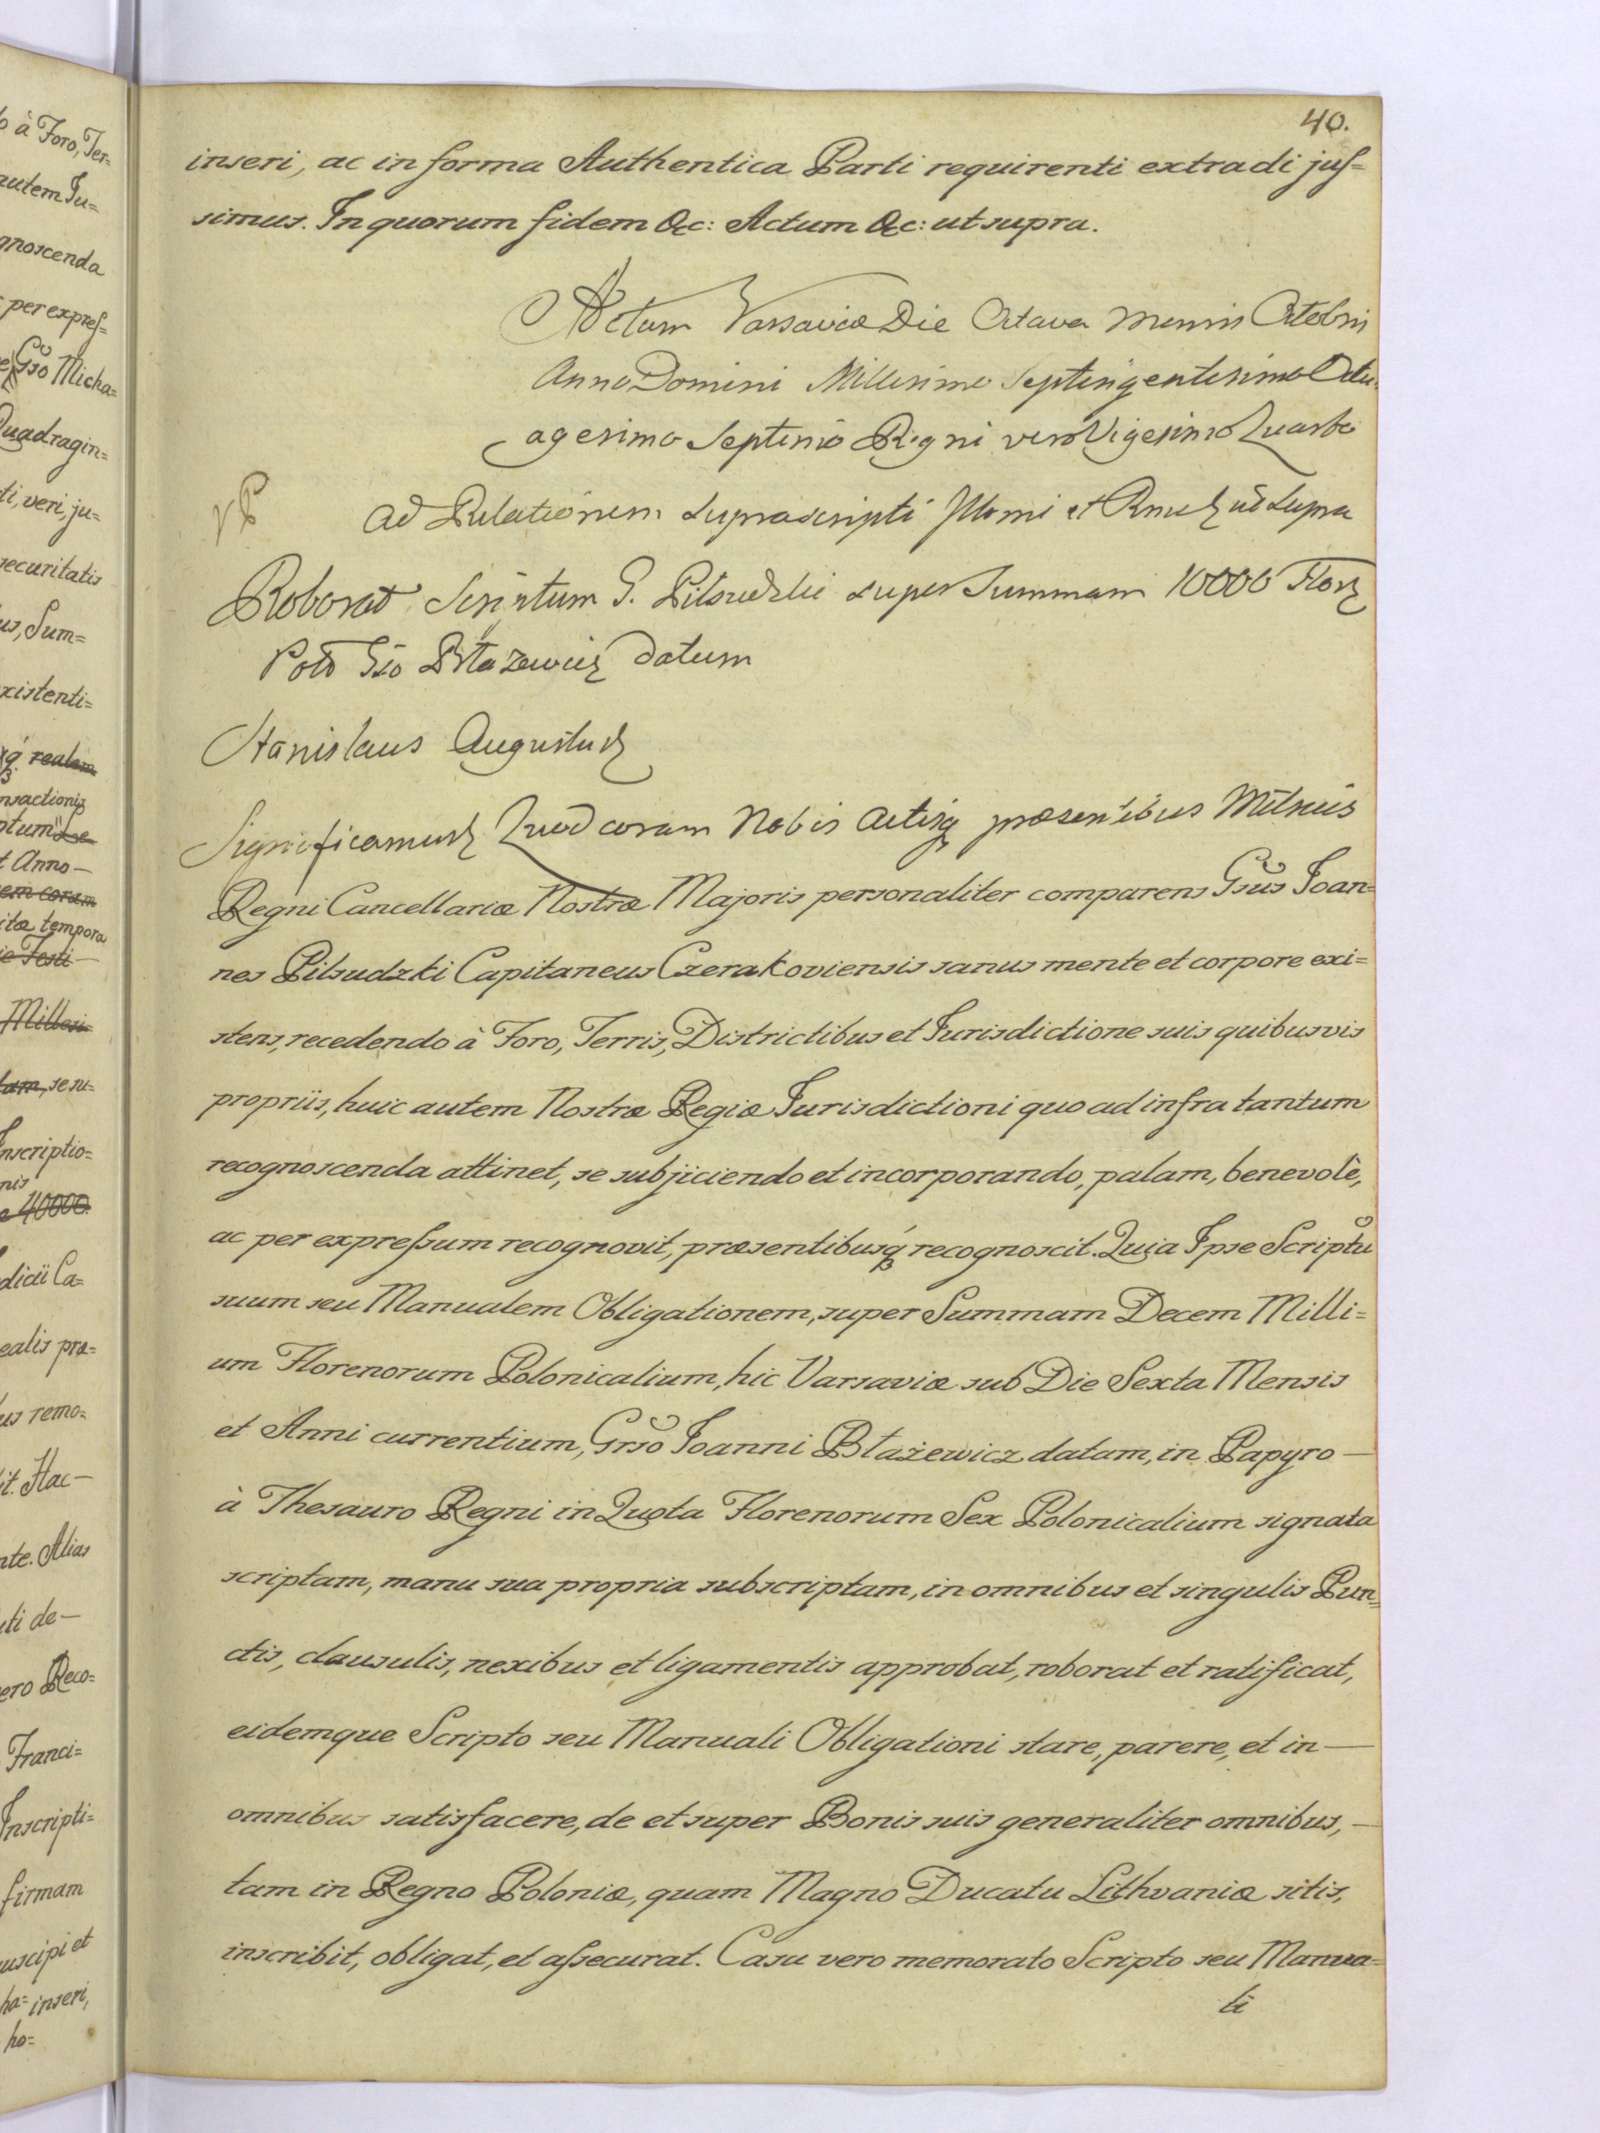 40.
inseri, ac in forma Authentica Parti requirenti extradi jus=
simus. In quorum fidem &c: Actum &c: ut supra.
Actum Varsaviæ Die Octava Mensis Octobris
Anno Domini Millesimo Septingentesimo Octu=
agesimo Septimo Regni vero Vigesimo Quarto
Ad Relationem suprascripti Illmi et Rmi ut supra
Roborat Scriptum G. Pilsudzki super Summam 10000 Flor
Pol Gso Błazewicz datum
Stanislaus Augustus
Significamus Quod coram Nobis Actisq præsentibus Mtricis
Regni Cancellariæ Nostræ Majoris personaliter comparens Gsus Joan=
nes Pilsudzki Capitaneus Czerakoviensis sanus mente et corpore exi=
stens, recedendo à Foro, Terris, Districtibus et Jurisdictione suis quibusvis
propriis, huic autem Nostræ Regiæ Jurisdictioni quo ad infra tantum
recognoscenda attinet, se subjiciendo et incorporando, palam, benevolè,
ac per expressum recognovit, præsentibusq́ recognoscit. Quia Ipse Scriptu
suum seu Manualem Obligationem, super Summam Decem Milli=
um Florenorum Polonicalium, hic Varsaviæ sub Die Sexta Mensis
et Anni currentium, Grso Joanni Błażewicz datam, in Papyro —
à Thesauro Regni in Quota Florenorum Sex Polonicalium signata
scriptam, manu sua propria subscriptam, in omnibus et singulis Pun=
ctis, clausulis, nexibus et ligamentis approbat, roborat et ratificat,
eidemque Scripto seu Manuali Obligationi stare, parere, et in —
omnibus satisfacere, de et super Bonis suis generaliter omnibus, —
tam in Regno Poloniæ, quam Magno Ducatu Lithvaniæ sitis,
inscribit, obligat, et assecurat. Casu vero memorato Scripto seu Manua=
li